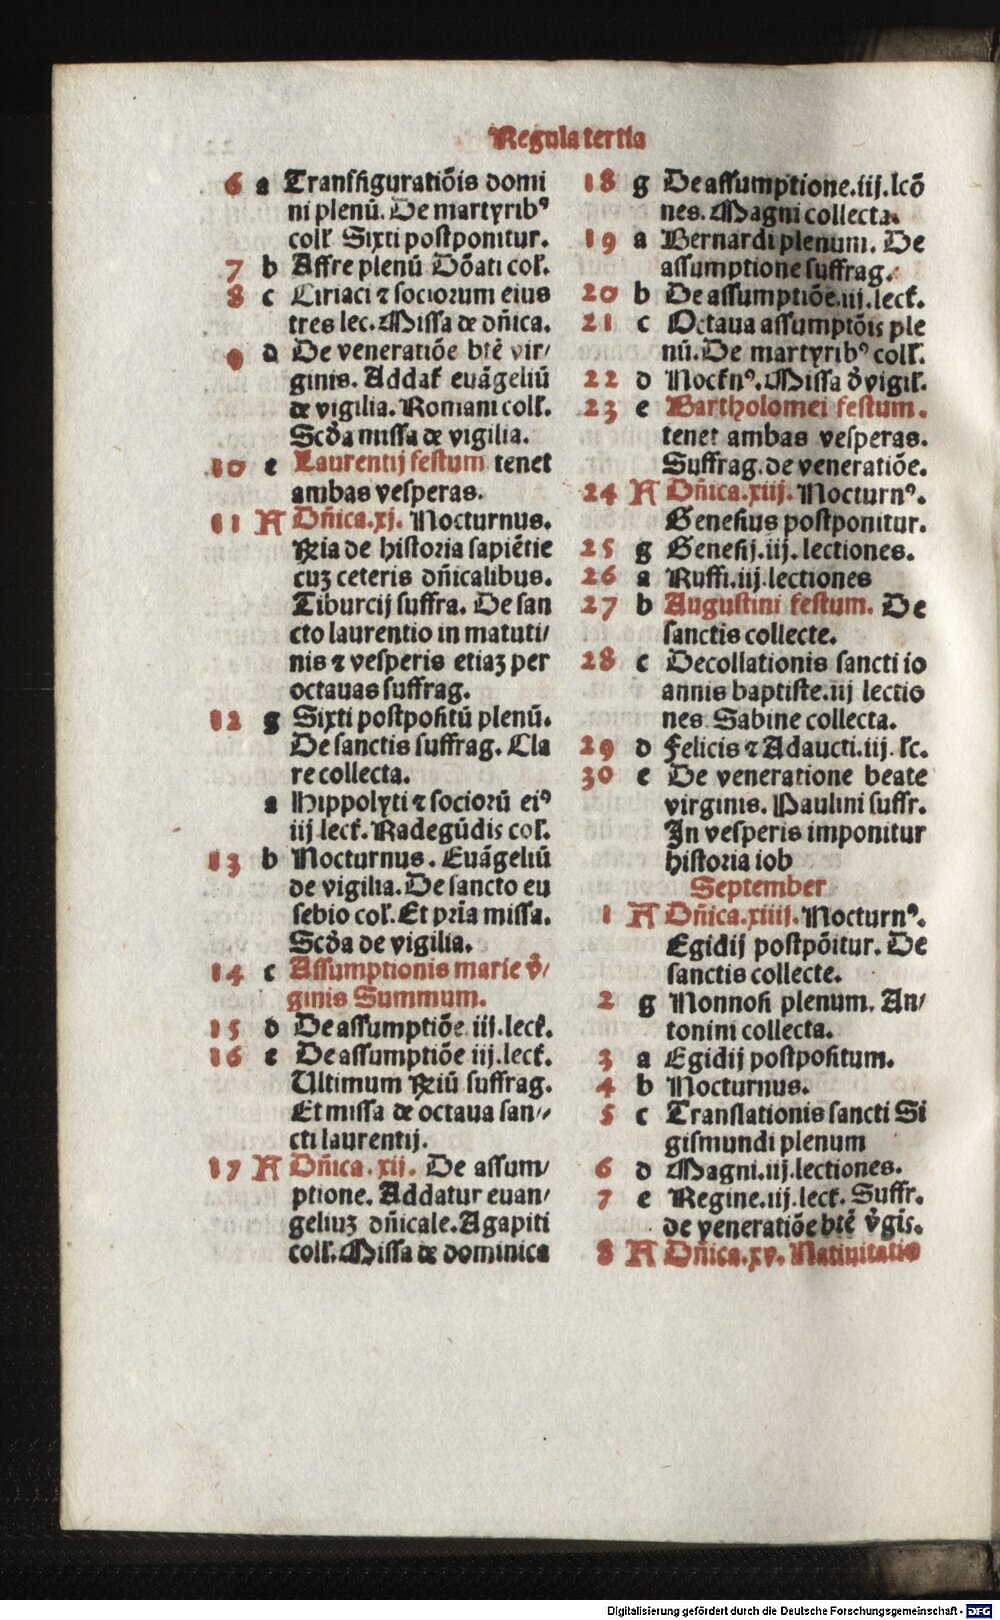 Regula tertia
6 a Tranſfiguratiõis domi
ni plenũ. De martyribꝰ
coll̃ Sixti poſtponitur.
7 b Affre plenũ Dõati col̃.
8 c Ciriaci ⁊ ſociorum eius
tres lec. Miſſa de dñica.
9 d De veneratiõe btẽ vir⸗
ginis. Addat̃ euãgeliũ
de vigilia. Romani coll̃.
Scďa miſſa de vigilia.
10 e Laurentij feſtum tenet
ambas veſperas.
11 A Dñica.xj. Nocturnus.
Ꝛia de hiſtoria ſapiẽtie
cuꝫ ceteris dñicalibus.
Tiburcij ſuffra. De ſan
cto laurentio in matuti⸗
nis ⁊ veſperis etiaꝫ per
octauas ſuffrag.
12 g Sixti poſtpoſitũ plenũ.
De ſanctis ſuffrag. Cla
re collecta.
a Hippolyti ⁊ ſociorũ eiꝰ
iij.lect̃. Radegũdis col̃.
13 b Nocturnus. Euãgeliũ
de vigilia. De ſancto eu
ſebio col̃. Et pr̃ia miſſa.
Scďa de vigilia.
14 c Aſſumptionis marie v̓⸗
ginis Summum.
15 d De aſſumptiõe.iij.lect̃.
16 e De aſſumptiõe iij.lect̃.
Ultimum Ꝛiũ ſuffrag.
Et miſſa de octaua ſan⸗
cti laurentij.
17 A Dñica.xij. De aſſum⸗
ptione. Addatur euan⸗
geliuꝫ dñicale. Agapiti
coll̃. Miſſa de dominica
18 g De aſſumptione.iij.lcõ
nes. Magni collecta.
19 a Bernardi plenum. De
aſſumptione ſuffrag.
20 b De aſſumptiõe.iij.lect̃.
21 c Octaua aſſumptõis ple
nũ. De martyribꝰ coll̃.
22 d Noct̃nꝰ. Miſſa ď vigil̃.
23 e Bartholomei feſtum.
tenet ambas veſperas.
Suffrag. de veneratiõe.
24 A Dñica.xiij. Nocturnꝰ.
Geneſius poſtponitur.
25 g Geneſij.iij. lectiones.
26 a Ruffi.iij.lectiones
27 b Auguſtini feſtum. De
ſanctis collecte.
28 c Decollationis ſancti io
annis baptiſte.iij lectio
nes. Sabine collecta.
29 d Felicis ⁊ Adaucti.iij. l̃c.
30 e De veneratione beate
virginis. Paulini ſuffr.
In veſperis imponitur
hiſtoria iob
September
1 A Dñica.xiiij. Nocturnꝰ.
Egidij poſtpõitur. De
ſanctis collecte.
2 g Nonnoſi plenum. An⸗
tonini collecta.
3 a Egidij poſtpoſitum.
4 b Nocturnus.
5 c Tranſlationis ſancti Si
giſmundi plenum
6 d Magni.iij.lectiones.
7 e Regine.iij.lect̃. Suffr.
de veneratiõe btẽ v̓gis̃.
8 A Dñica.xv. Natiuitatis
Digitalisierung gefördert durch die Deutsche Forschungsgemeinschaft - DFG